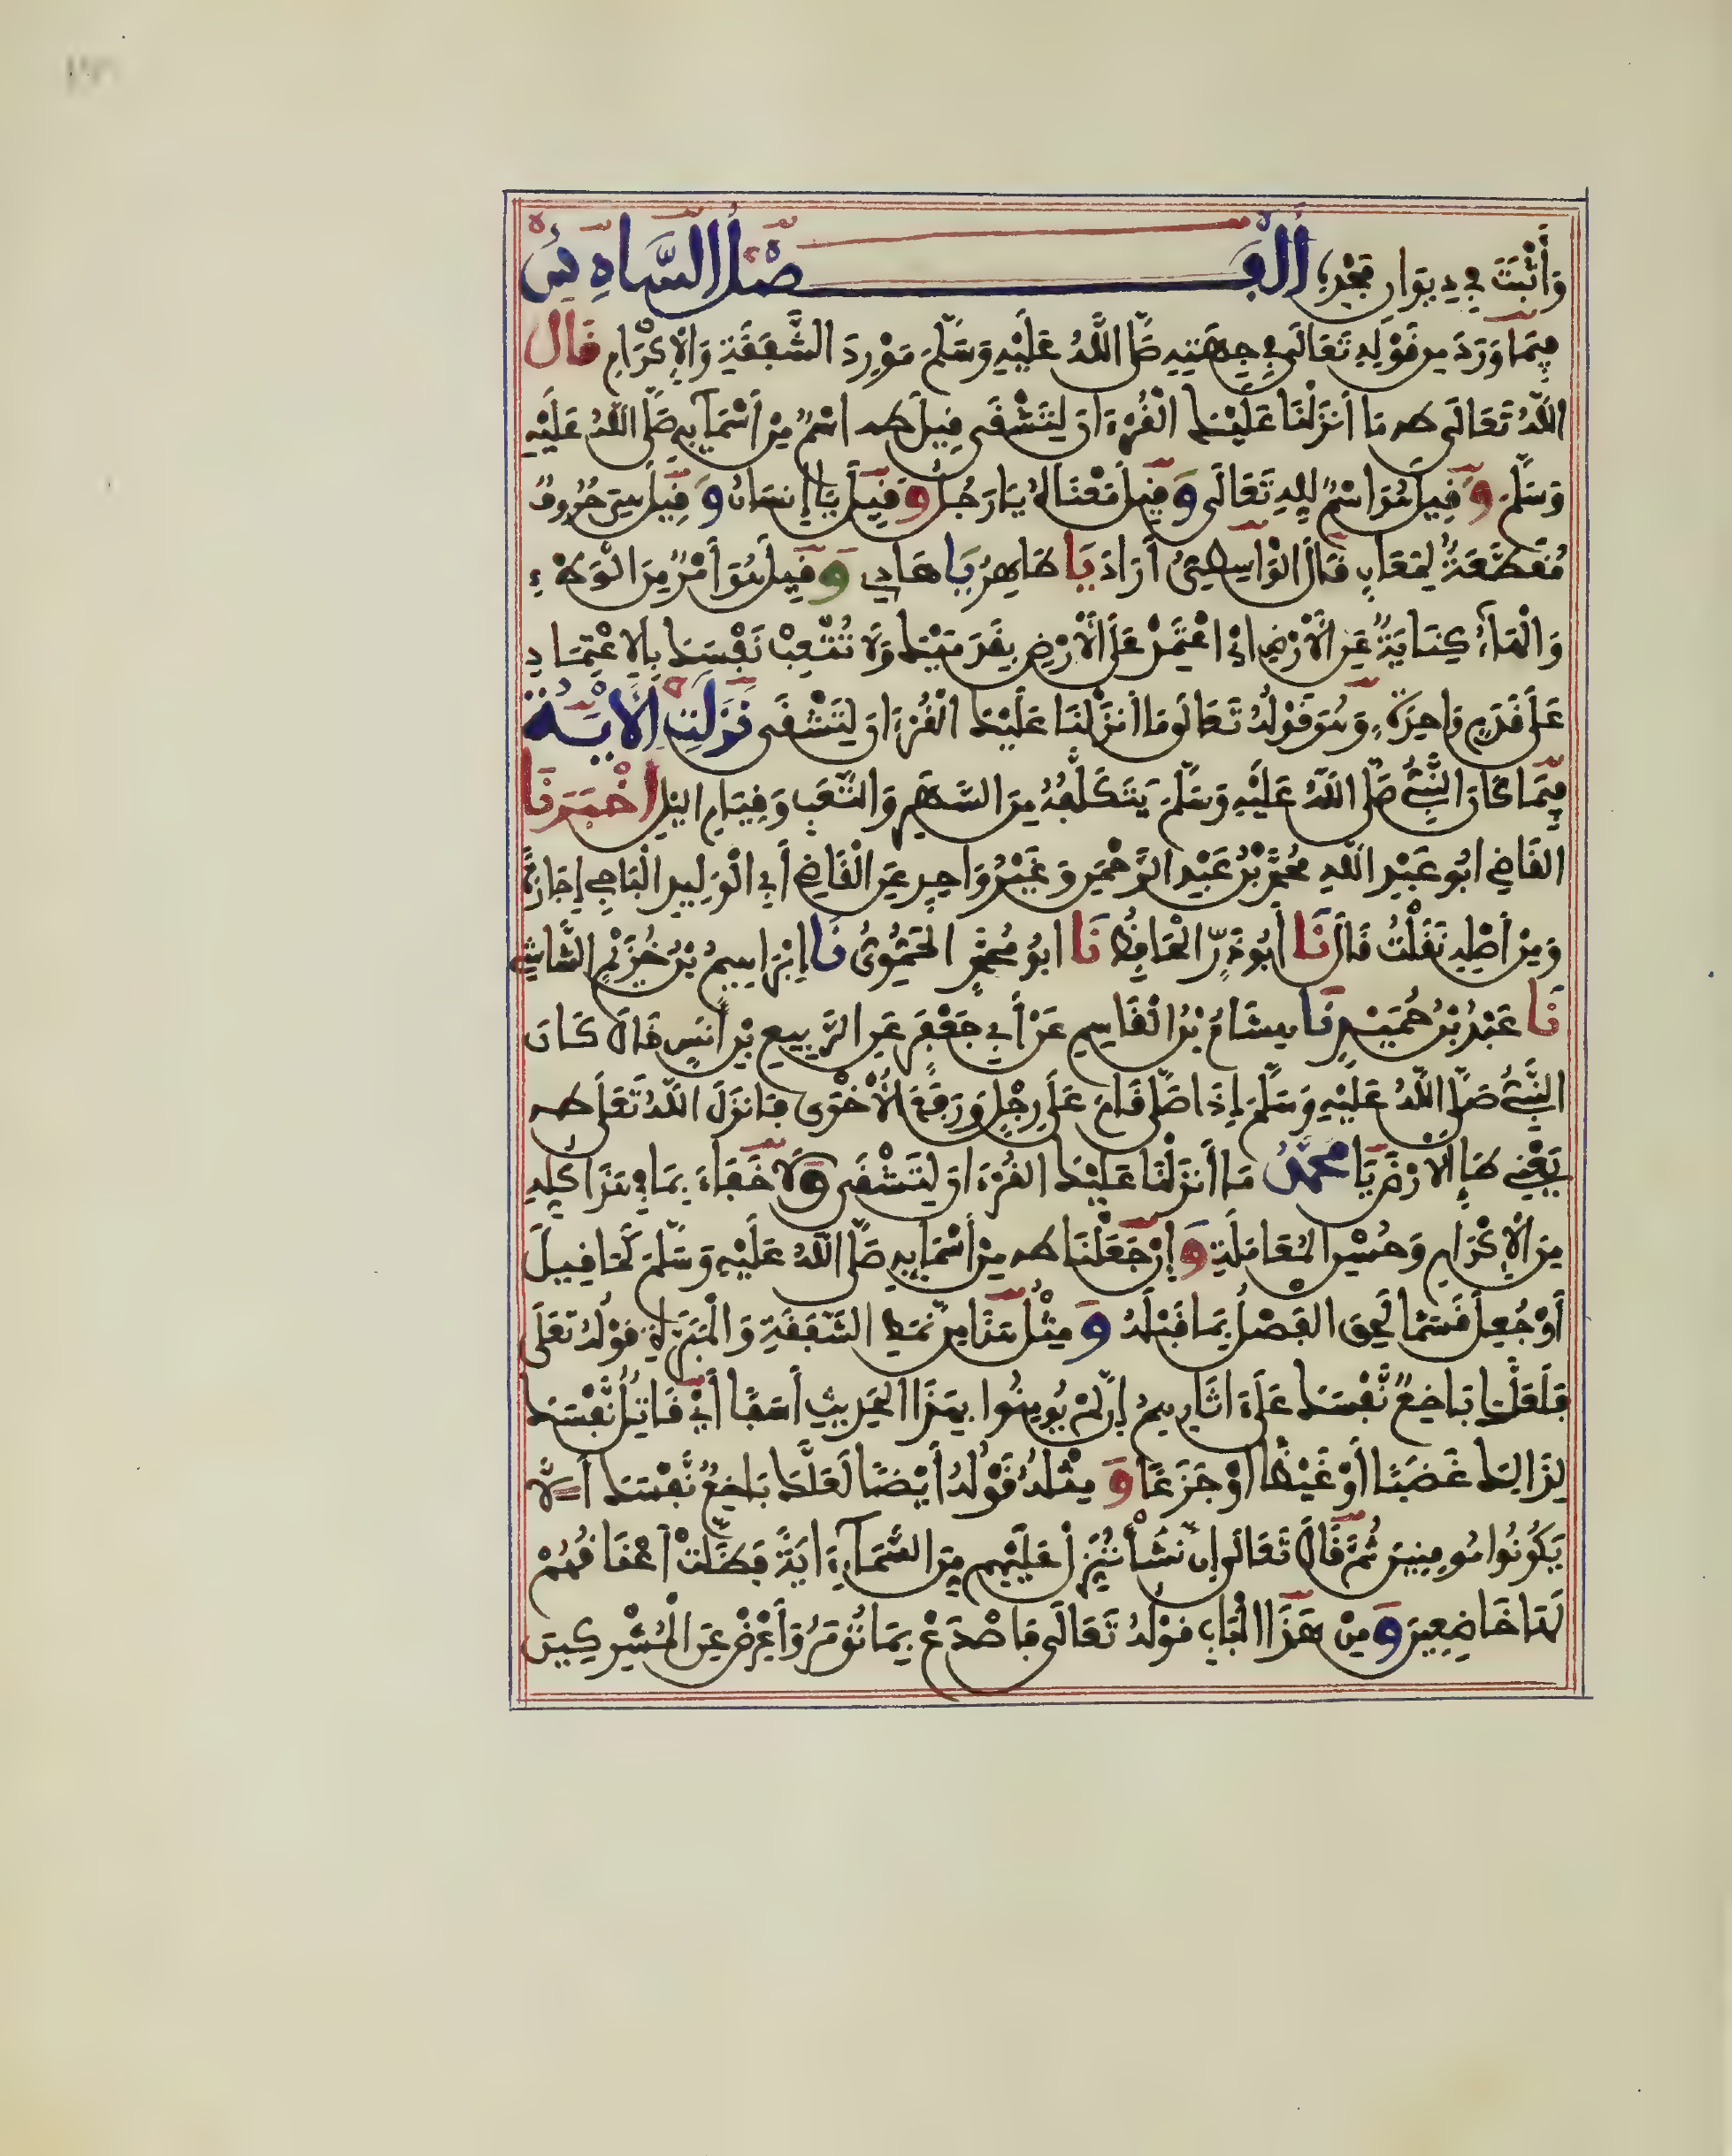 وَأَثْبَتَ فِي دِيوَانِ مَجْدِهِ الْفَصْلُ السَّادِسُ
فِيمَا وَرَدَ مِن قَوْلِهِ تَعَالَى فِي جِهَتِهِ صَلَّى اللَّهُ عَلَيْهِ وَسَلَّمَ مَوْرِدَ الشَّفَقَةِ وَالْإِكْرَامِ قَالَ
اللَّهُ تَعَالَى طه مَا أَنزَلْنَا عَلَيْكَ الْقُرْءَانَ لِتَشْقَى قِيلَ طه اسْمٌ مِنْ أَسْمَائِهِ صَلَّى اللَّهُ عَلَيْهِ
وَسَلَّمَ وَقِيلَ هُوَ اسْمٌ لِلَّهِ تَعَالَى وَقِيلَ مَعْنَاهُ يَا رَجُلُ وَقِيلَ يَا إِنسَانُ وَقِيلَ هِيَ حُرُوفٌ
مُقَطَّعَةٌ لِمَعَانٍ قَالَ الْوَاسِطِيُّ أَرَادَ يَا طَاهِرُ يَا هَادِي وَقِيلَ هُوَ أَمْرٌ مِنَ الْوَطْءِ
وَالْهَاءُ كِنَايَةٌ عَنِ الْأَرْضِ أَيِ اعْتَمِدْ عَلَى الْأَرْضِ بِقَدَمَيْكَ وَلَا تُتْعِبْ نَفْسَكَ بِالِاعْتِمَادِ
عَلَى قَدَمٍ وَاحِدَةٍ وَهُوَ قَوْلُهُ تَعَالَى مَا أَنزَلْنَا عَلَيْكَ الْقُرْءَانَ لِتَشْقَى نَزَلَتِ الْآيَةُ
فِيمَا كَانَ النَّبِيُّ صَلَّى اللَّهُ عَلَيْهِ وَسَلَّمَ يَتَكَلَّفُهُ مِنَ السَّهَرِ وَالتَّعَبِ وَقِيَامِ اليْلِ أَخْبَرَنَا
الْقَاضِي أَبُو عَبْدِ اللَّهِ مُحَمَّدُ بْنُ عَبْدِ الرَّحْمَنِ وَغَيْرُ وَاحِدٍ عَنِ الْقَاضِي أَبِي الْوَلِيدِ الْبَاجِي إِجَازَةً
وَمِنْ أَصْلِهِ نَقَلْتُ قَالَ نَا أَبُو ذَرٍّ الْحَافِظُ نَا أَبُو مُحَمَّدٍ الْحَمُّوِيُّ نَا إِبْرَاهِيمُ بْنُ خُزَيْمٍ الشَّاشِي
نَا عَبْدُ بْنُ حُمَيْدٍ نَا هِشَامُ بْنُ الْقَاسِمِ عَنْ أَبِي جَعْفَرٍ عَنِ الرَّبِيعِ بْنِ أَنَسٍ قَالَ كَانَ
النَّبِيُّ صَلَّى اللَّهُ عَلَيْهِ وَسَلَّمَ إِذَا صَلَّى قَامَ عَلَى رِجْلٍ وَرَفَعَ الْأُخْرَى فَأَنزَلَ اللَّهُ تَعَلَى طه
يَعْنِي طَإِ الْأَرْضَ يَا مُحَمَّدُ مَا أَنزَلْنَا عَلَيْكَ الْقُرْءَانَ لِتَشْقَى وَلَا خَفَاءَ بِمَا فِي هَذَا كُلِّهِ
مِنَ الْإِكْرَامِ وَحُسْنِ الْمُعَامَلَةِ وَإِنْ جَعَلْنَا طه مِنْ أَسْمَائِهِ صَلَّى اللَّهُ عَلَيْهِ وَسَلَّمَ كَمَا قِيلَ
أَوْ جُعِلَ قَسَمًا لَحِقَ الْفَصْلُ بِمَا قَبْلَهُ وَمِثْلُ هَذَا مِنْ نَمَطِ الشَّفَقَةِ وَالْمَبَرَّةِ قَوْلُهُ تَعَلَى
فَلَعَلَّكَ بَاخِعٌ نَّفْسَكَ عَلَى ءَاثَارِهِمُ إِن لَّمْ يُومِنُوا بِهَذَا الْحَدِيثِ أَسَفًا أَيْ قَاتِلٌ نَّفْسَكَ
لِذَالِكَ غَضَبًا أَوْ غَيْظًا أَوْ جَزَعًا وَمِثْلُهُ قَوْلُهُ أَيْضًا لَعَلَّكَ بَاخِعٌ نَّفْسَكَ أَلَّا
يَكُونُوا مُومِنِينَ ثُمَّ قَالَ تَعَالَى إِن نَّشَأْ نُنَزِّلْ عَلَيْهِم مِّنَ السَّمَاءِ ءَايَةً فَظَلَّتْ أَعْنَاقُهُمْ
لَهَا خَاضِعِينَ وَمِنْ هَذَا الْبَابِ قَوْلُهُ تَعَالَى فَاصْدَعْ بِمَا تُومَرُ وَأَعْرِضْ عَنِ الْمُشْرِكِينَ